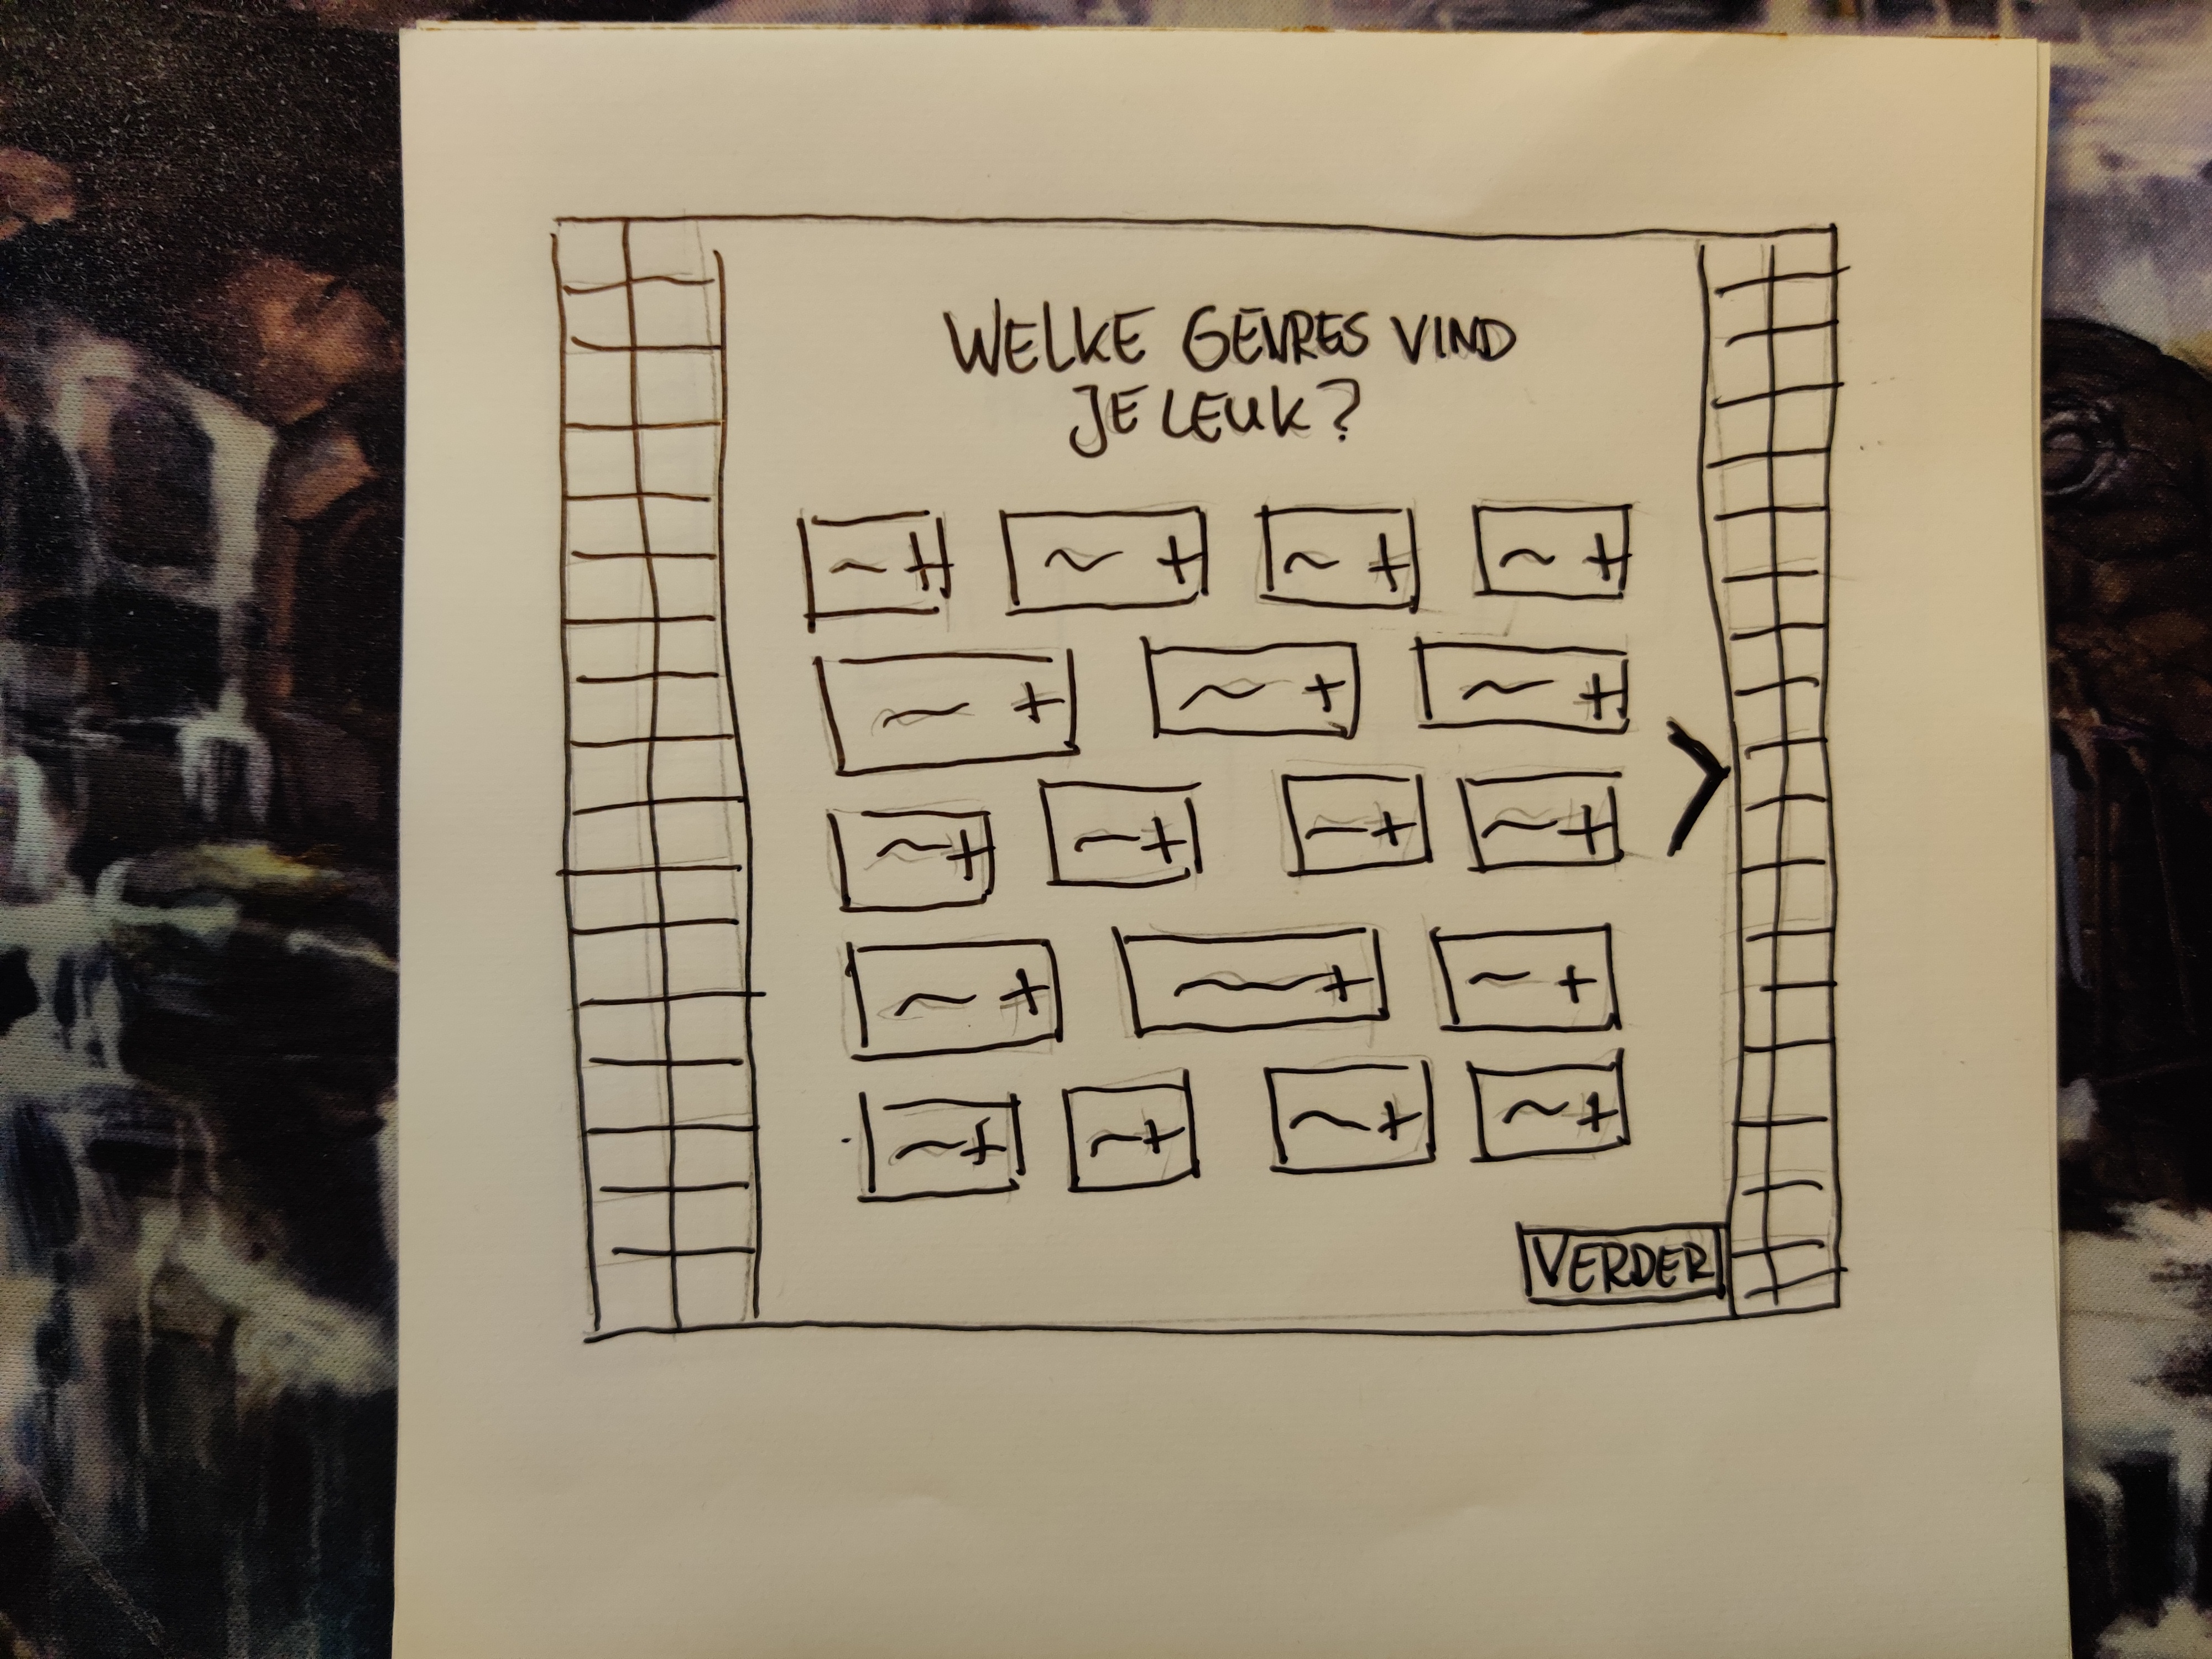 WELKE GENRES VIND
JE LEUK?
+ + + +
+ + +
+ + + +
+ + +
+ + + +
>
VERDER